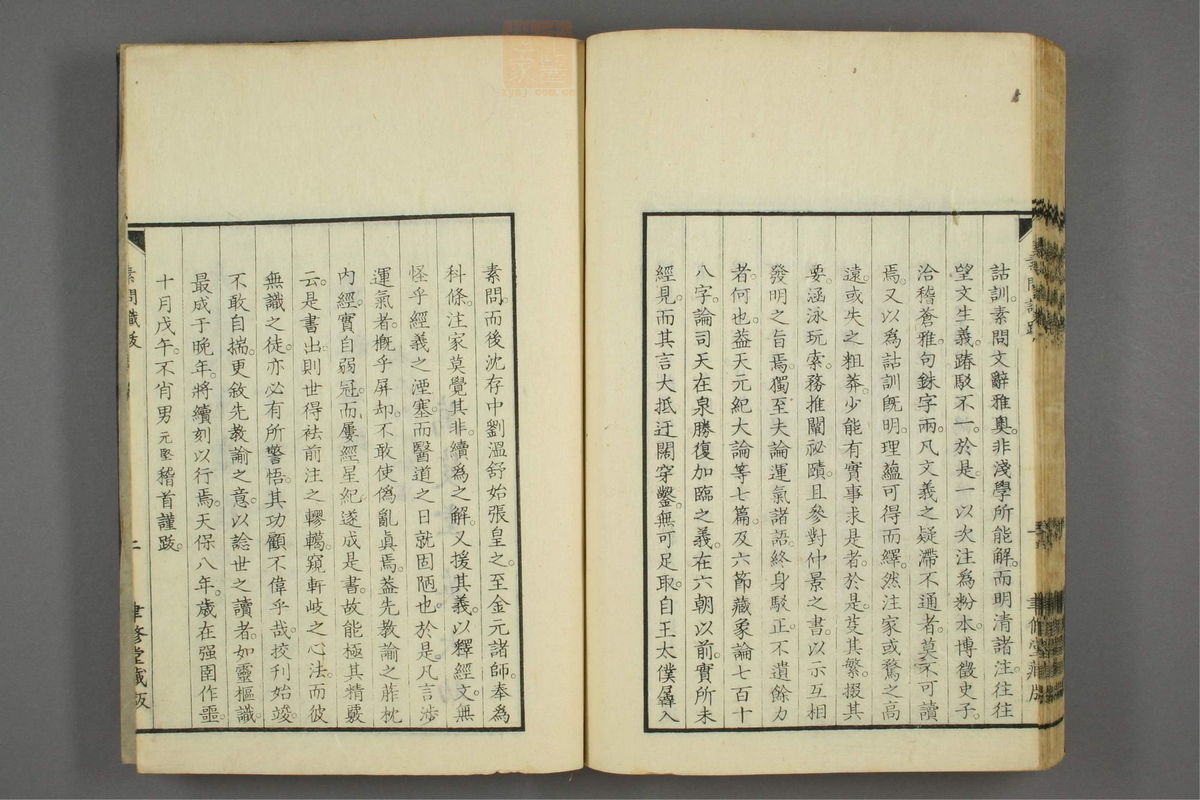 詁訓。素問文辭雅奧。非淺學所能解。而明清諸注。往往
望文生義。踳駁不一。於是一以次注爲粉本。博徵史子。
洽稽蒼雅。句銖字兩。凡文義之疑滯不通者。莫不可讀
焉。又以爲詁訓既明。理蘊可得而繹。然注家或騖之高
遠。或失之粗莽。少能有實事求是者。於是芟其繁。掇其
要。涵泳玩索。務推闡祕賾。且參對仲景之書。以示互相
發明之旨焉。獨至夫論運氣諸語。終身駁正。不遺餘力
者。何也。葢天元紀大論等七篇。及六節藏象論七百十
八字。論司天在泉勝復加臨之義。在六朝以前。實所未
經見。而其言大抵迂闊穿鑿。無可足取。自王太僕羼入
素問。而後沈存中劉溫舒始張皇之。至金元諸師。奉爲
科條。注家莫覺其非。續爲之解。又援其義。以釋經文。無
怪乎經義之湮塞。而醫道之日就固陋也。於是凡言涉
運氣者。概乎屏却。不敢使僞亂眞焉。葢先教諭之葄枕
內經。實自弱冠。而屢經星紀。遂成是書。故能極其精覈
云。是書出。則世得袪前注之轇轕。窺軒岐之心法。而彼
無識之徒。亦必有所警悟。其功顧不偉乎哉。挍刊始竣。
不敢自揣。更敘先教諭之意。以諗世之讀者。如靈樞識。
最成于晚年。將續刻以行焉。天保八年。歲在强圉作噩。
十月戊午。不肖男元堅稽首謹跋。
素問識跋
二
聿修堂藏版